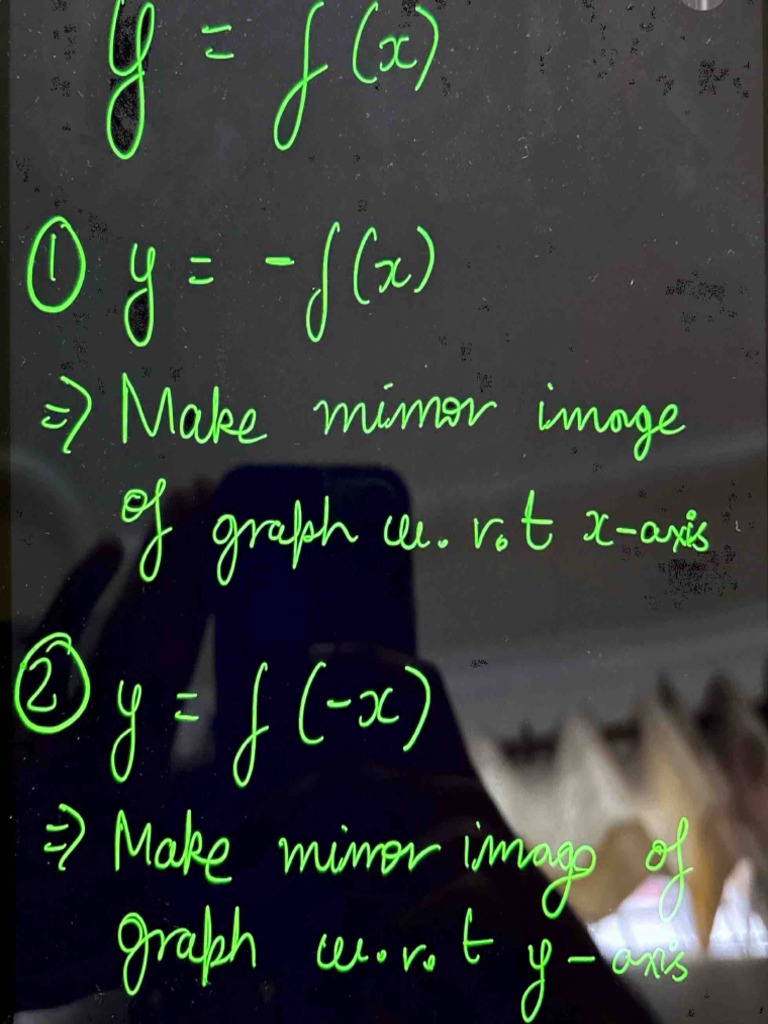 y = f(x)
① y = -f(x)
⇒ Make mirror image
of graph w.r.t x-axis
② y = f(-x)
⇒ Make mirror image of
graph w.r.t y-axis